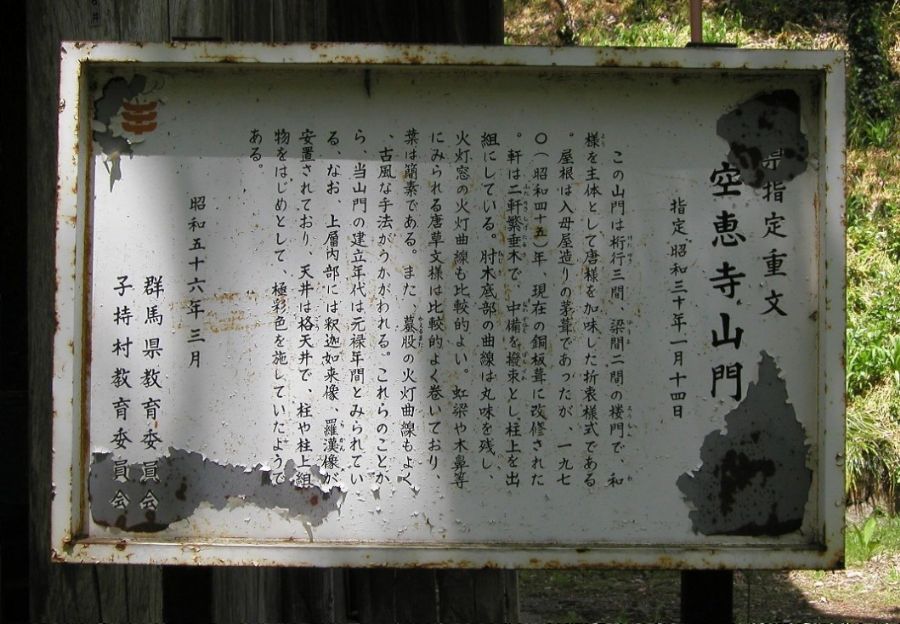 県指定重文
空恵寺山門
指定 昭和三十年一月十四日
この山門は桁行三間、梁間二間の楼門で、和
様を主体として唐様を加味した折衷様式である
。屋根は入母屋造りの茅葺であったが、一九七
〇(昭和四十五)年、現在の銅板葺に改修された
。軒は二軒繁垂木で、中備を撥束とし柱上を出
組にしている。肘木底部の曲線は丸味を残し、
火灯窓の火灯曲線も比較的よい。虹梁や木鼻等
にみられる唐草文様は比較的よく巻いており、
葉は簡素である。また 蟇股の火灯曲線もよく
、古風な手法がうかがわれる。これらのことか
ら、当山門の建立年代は元禄年間とみられてい
る、なお 上層内部には釈迦如来像、羅漢像が
安置されており 天井は格天井で、柱や柱上組
物をはじめとして、極彩色を施していたようで
ある。
昭和五十六年三月
群馬県教育委員会
子持村教育委員会